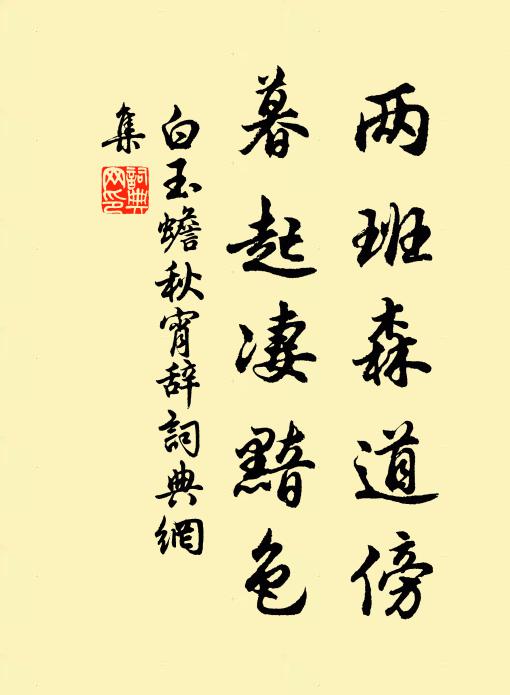 两班森道傍
暮起凄黯色
白玉蟾秋宵辞詞典網
集
詞典网印